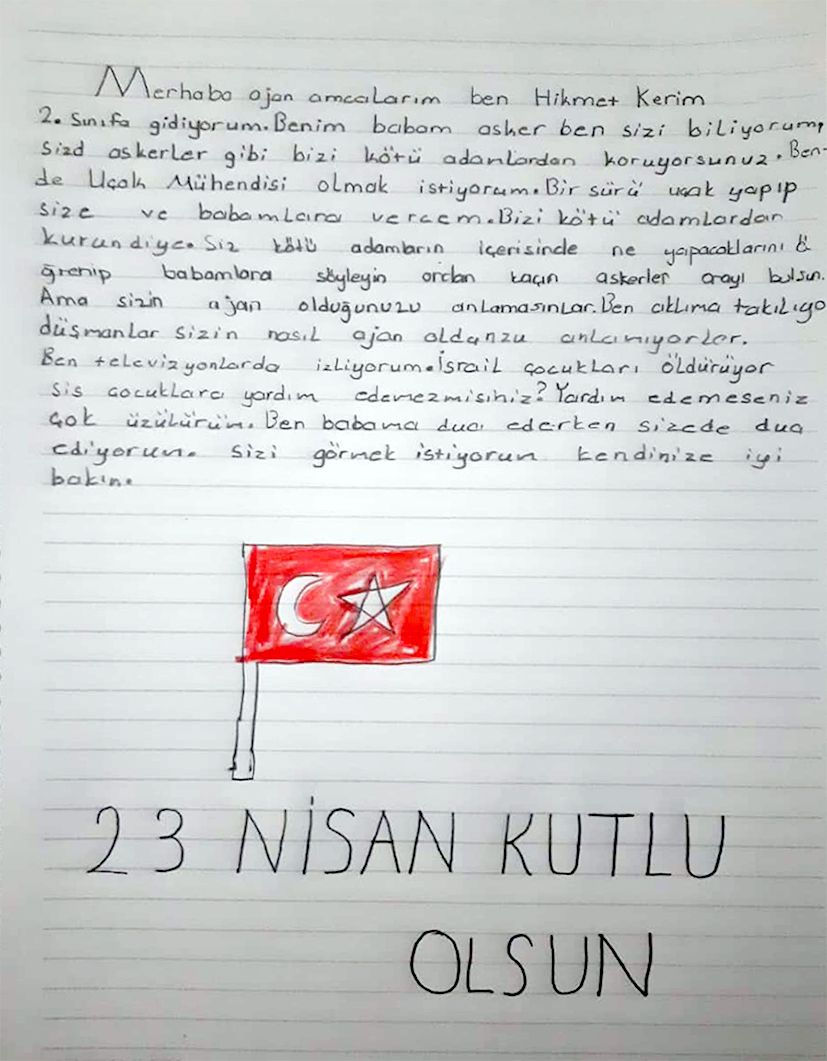 Merhaba ajan amcalarım ben Hikmet Kerim
2. Sınıfa gidiyorum. Benim babam asker ben sizi biliyorum,
sizd askerler gibi bizi kötü adamlardan koruyorsunuz. Ben-
de Uçak Mühendisi olmak istiyorum. Bir sürü uçak yapıp
size ve babamlara vercem. Bizi kötü adamlardan
kurun diye. Siz kötü adamların içerisinde ne yapacaklarını ö
ğrenip babamlara söyleyin ordan kaçın askerler orayı bulsun.
Ama sizin ajan olduğunuzu anlamasınlar. Ben aklıma takılıyo
düşmanlar sizin nasıl ajan oldunzu anlamıyorlar.
Ben televizyonlarda izliyorum. İsrail çocukları öldürüyor
sis çocuklara yardım edemezmisihiz? Yardım edemeseniz
çok üzülürüm. Ben babama dua ederken sizede dua
ediyorum. sizi görmek istiyorun kendinize iyi
bakın.
23 NİSAN KUTLU
OLSUN